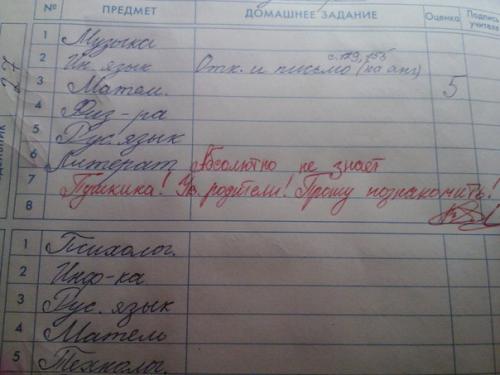 № ПРЕДМЕТ ДОМАШНЕЕ ЗАДАНИЕ Оценка Подпись учителя
1 Музыка
2 Ин. язык Отк. и письмо (на анг) с. 129,
3 Матем. 5
4 Физ-ра
5 Рус. язык
6 Литерат. Абсолютно не знает
7 Пушкина! Ув. родители! Прошу познакомить!
8
1 Психолог.
2 Инф-ка
3 Рус. язык
4 Матем
5 Технолог.
27